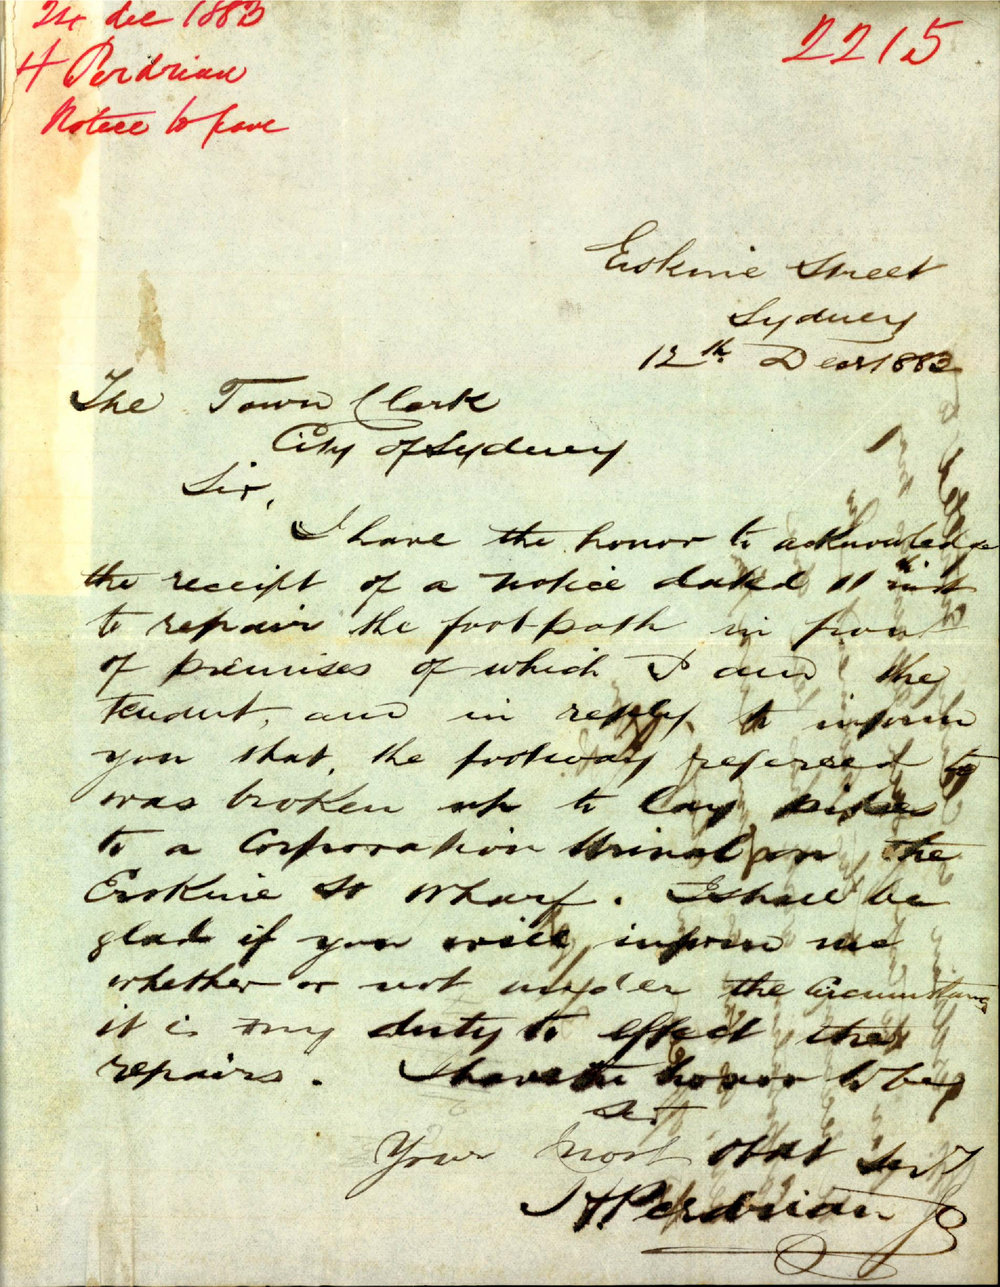 24 dec 1883
2215
H Perdriau
Notice to pave
Erskine Street
Sydney
12th Decr 1883
The Town Clerk
City of Sydney
Sir,
I have the honor to acknowledge
the receipt of a notice dated 11th inst
to repair the foot-path in front
of premises of which I am the
tenant, and in reply to inform
you that, the footway referred to
was broken up to lay pipes
to a Corporation Urinal on the
Erskine St Wharf. I shall be
glad if you will inform me
whether or not under the circumstances
it is my duty to effect the
repairs. I have the honor to be
Sir
Your Most Obdt Servt
Perdriau Jr